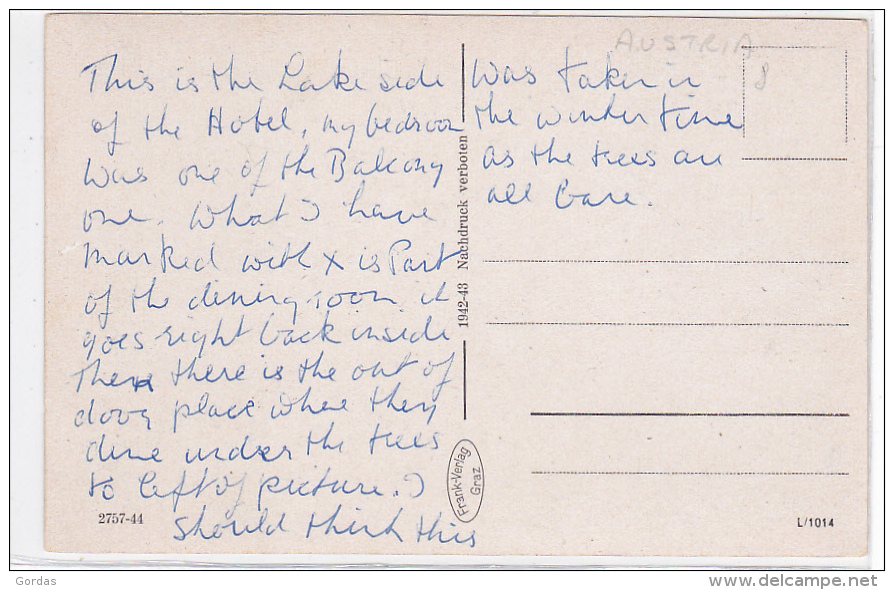 This is the Lake side
of the Hotel, my bedroom
was one of the Balcony
one. What I have
marked with x is Part
of the dining-room it
goes right back inside
Then there is the out of
doors place where they
dine under the trees
to left of picture. I
should think this
was taken in
the winter time
as the trees are
all bare.
AUSTRIA
8
1942-43 Nachdruck verboten
Frank-Verlag
Graz
2757-44
L/1014
Gordas
www.delcampe.net